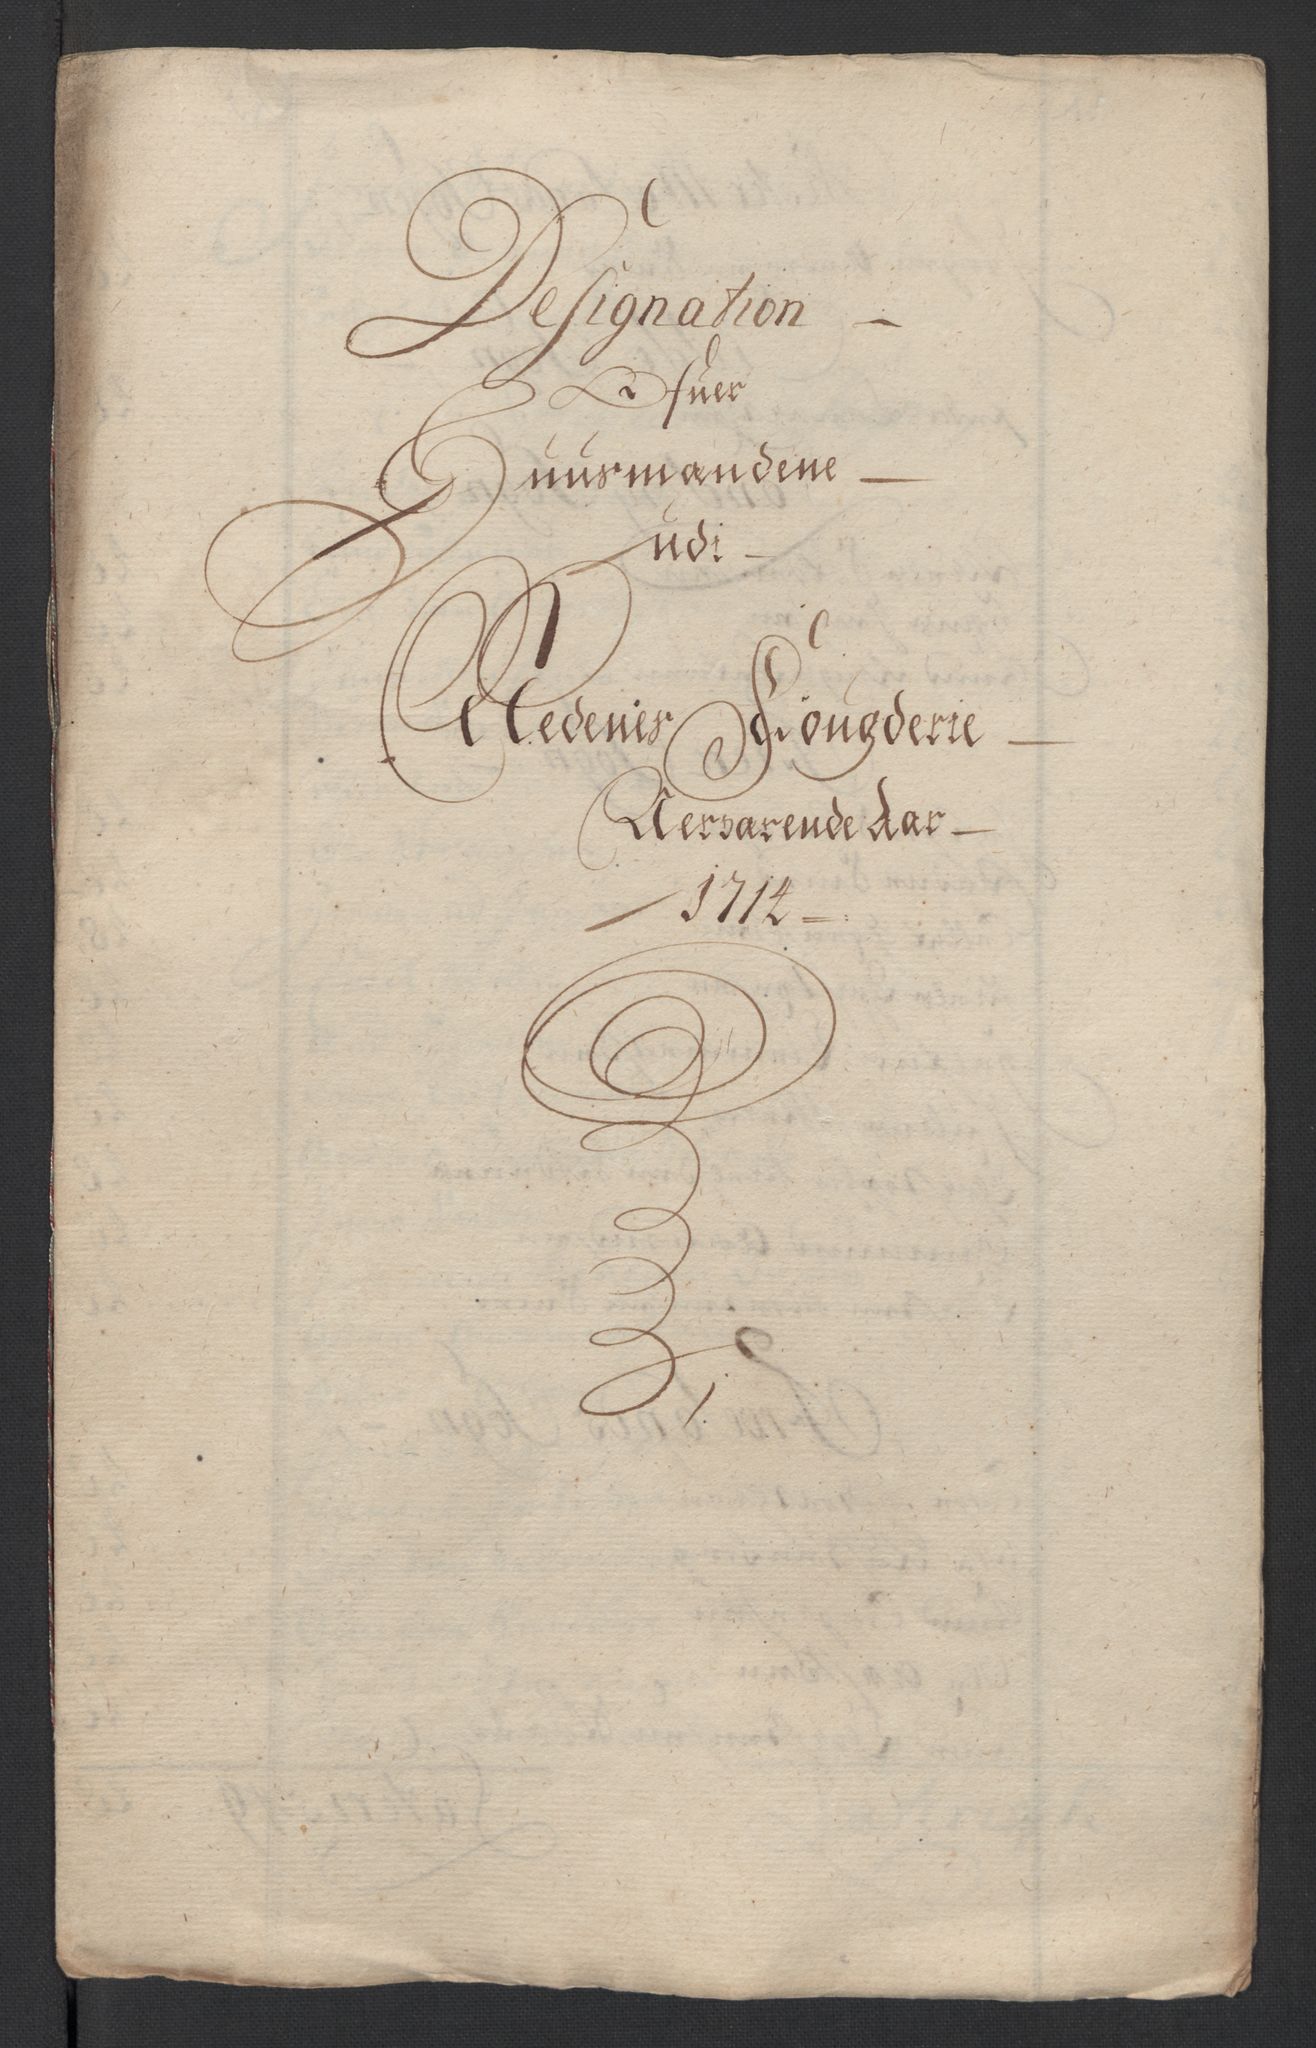 Designation
ofuer
Huusmændene
udi
Nedenes Fougderie
Nerværende Aar
1714